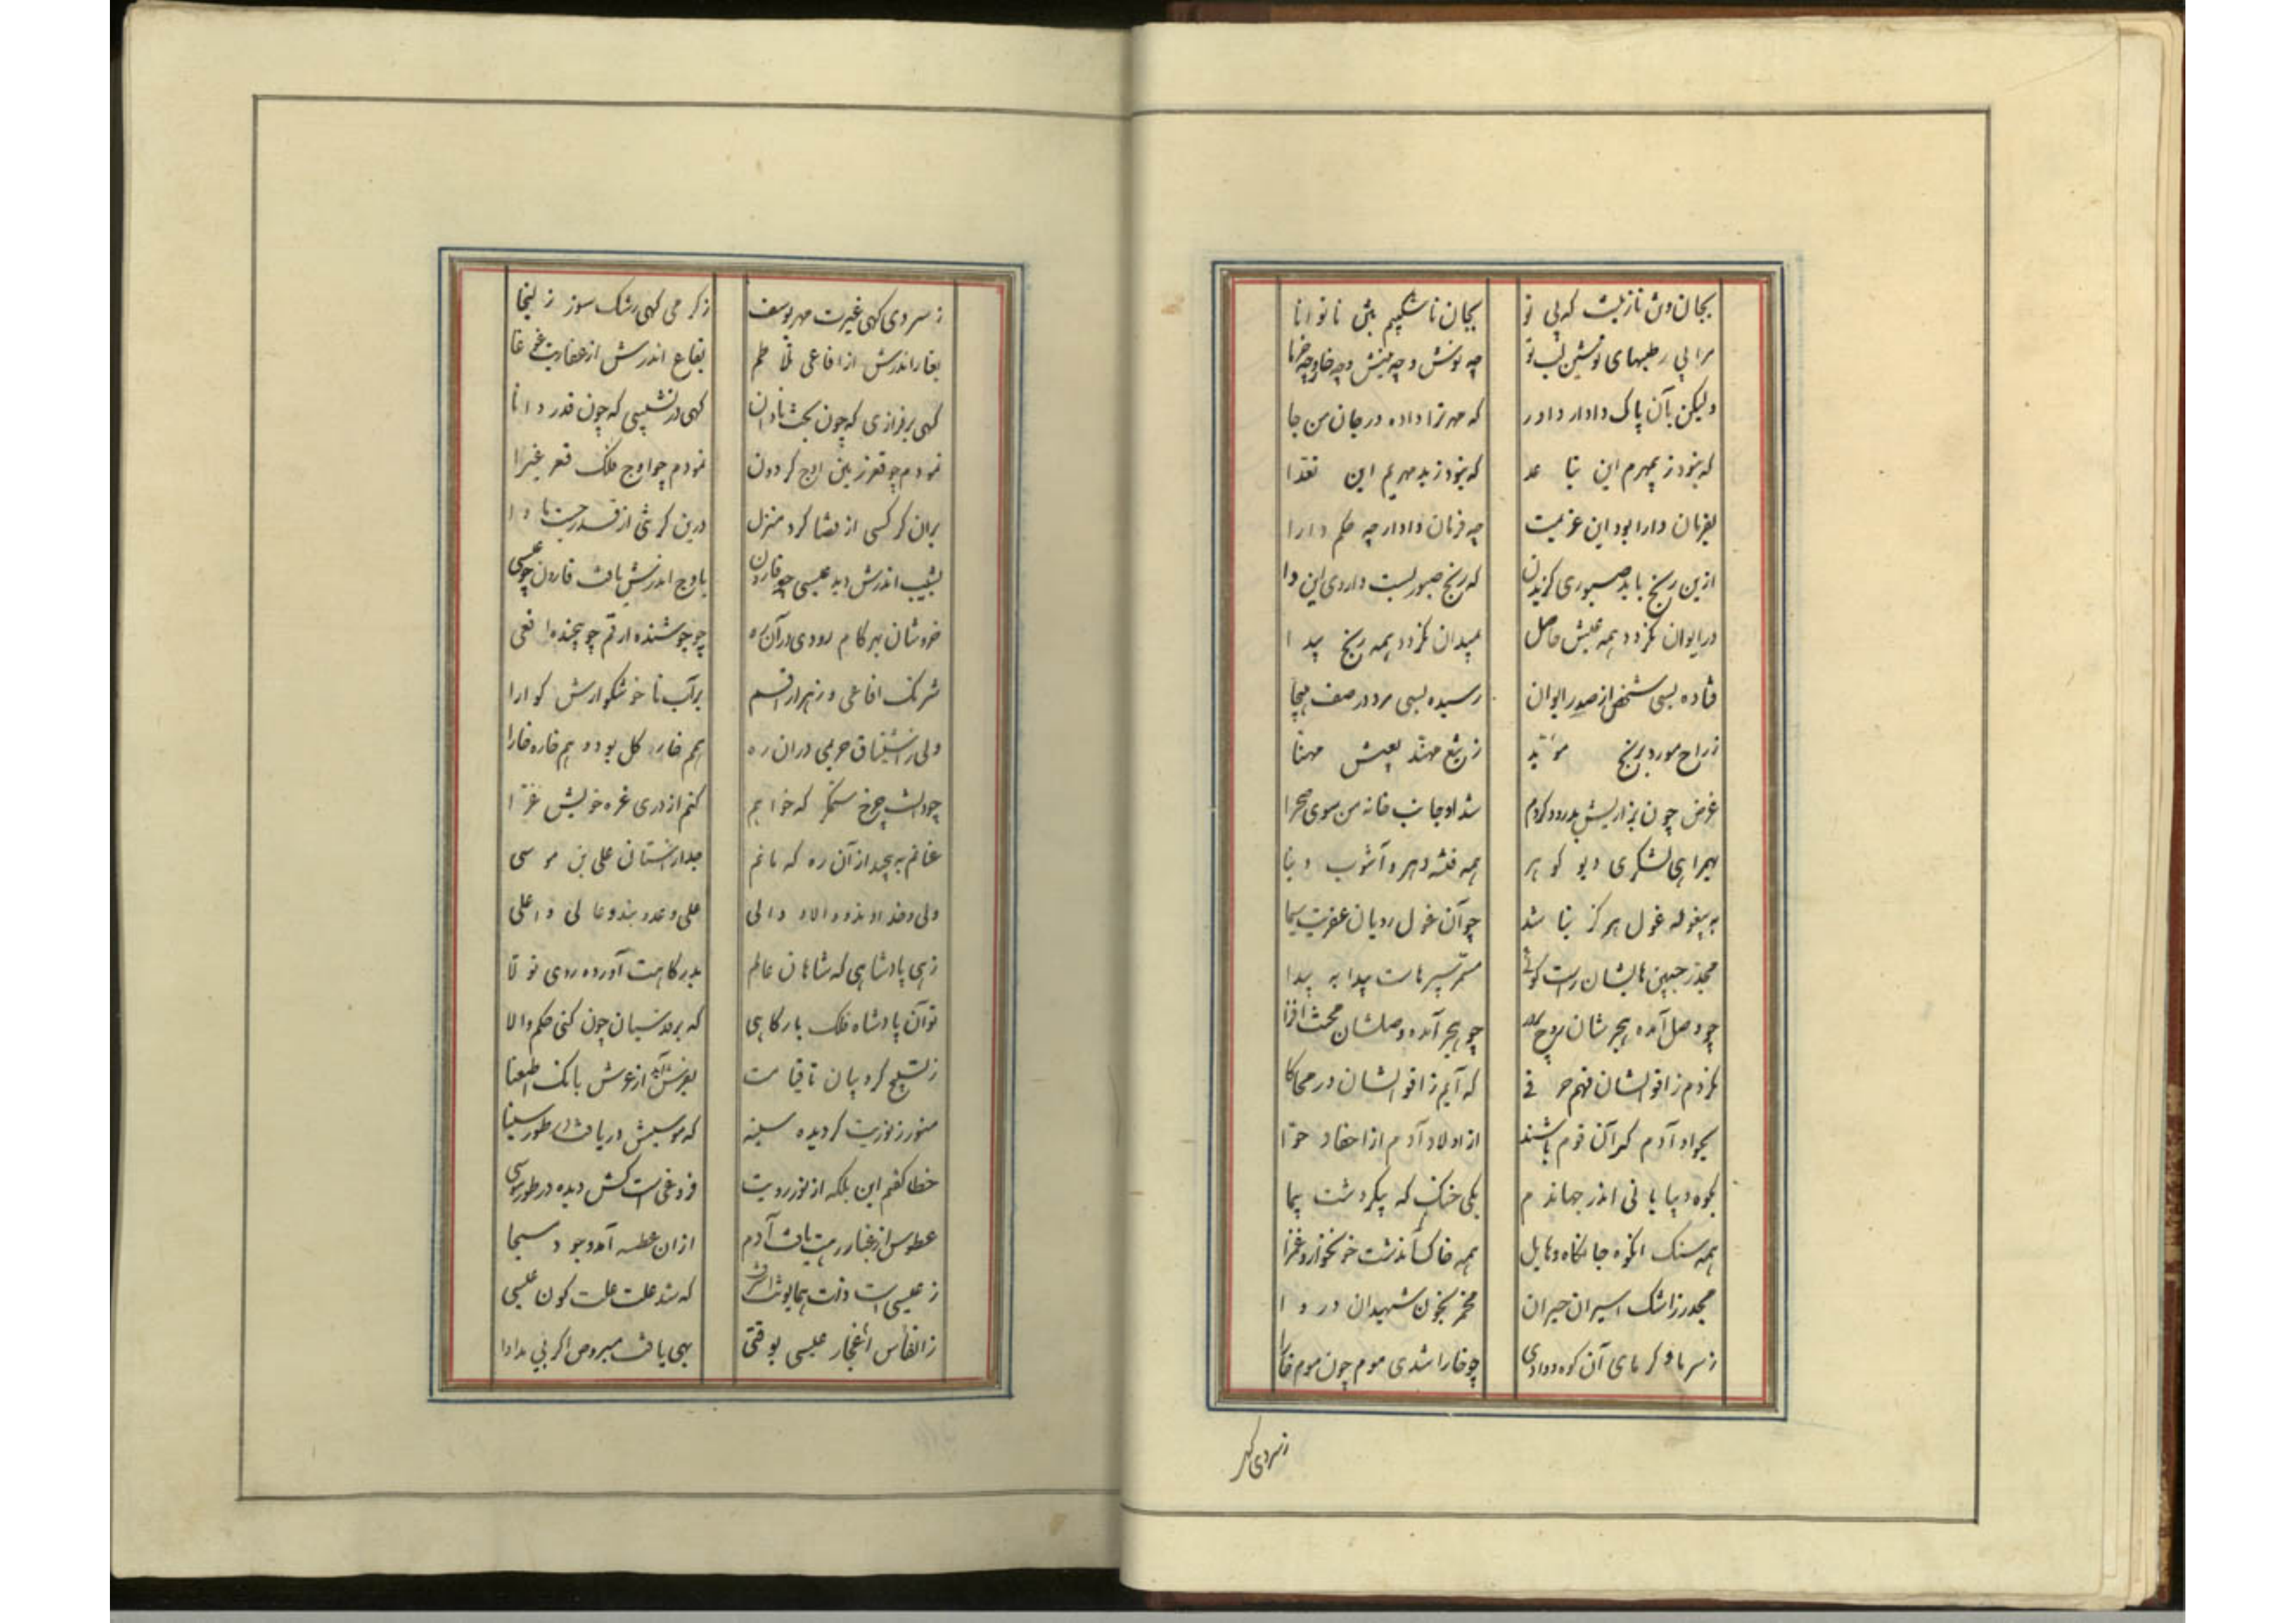 بجان و تن نازنینت که بی تو بجان ناشکیبم بتن ناتوانا
مرا بی رطبهای نوشین لب تو چه نوش و چه نیش و چه خار و چه خرما
ولیکن بآن پاک دادار داور که مهر ترا داده در جان من جا
که نبود ز بیمهرم این تباعد که نبود ز بد مهریم این
بفرمان دارا بود این عزیمت چه فرمان دادار چه حکم دارا
ازین رنج باید صبوری گزیدن که رنج صبوریست داروی این دا
در ایوان نگردد همه عیش حاصل بمیدان نگردد همه رنج پیدا
فتاده بسی شخص از صدر ایوان رسیده بسی مرد در صف هیجا
ز راح مورد برنج مؤبد ز تیغ مهند بعیش مهنا
غرض چون بزاریش پدرود کردم شد او جانب خانه من سوی صحرا
بهمراهی لشکری دیو گوهر همه فتنه دهر و آشوب دنیا
به بیغوله غول هرگز بناشد چو آن غول رویان عفریت سیما
مجدر جبین هایشان راست گوئی
چو وصل آمده هجرشان روح پرور چو هجر آمده وصلشان محنت افزا
نکردم ز اقوالشان فهم حرفی که آیم ز اقوالشان در محاکا
نجو او آدم گر آن قوم باشند از اولاد آدم از احفاد حوا
بکوه و بیابانی اندر جهاندم یکی خنگ که پیکر دشت پیما
همه سنگ آنکوه جانکاه و هایل همه خاک آندشت خونخوار و غبرا
مجدر ز اشک اسیران حیران مخمر بخون شهیدان در وا
ز سرما و گرمای آن کوه و وادی چو خارا شدی موم چون موم خارا
ز سردی کهی
ز سردی کهی غیرت مهر یوسف ز گرمی کهی رشک سوز زلیخا
بغار اندرش از افاعی تلاطم بقاع اندرش از عفاریت غوغا
کهی بر فرازی که چون بخت نادان کهی در نشیبی که چون قدر دانا
نمودم چو قعر زمین اوج گردون نمودم چو اوج فلک قعر غبرا
بر آن کرکسی از قضا کرد منزل درین کرمی از قدر جست ماوا
بشیب اندرش دید عیسی چو قارون باوج اندرش یافت قارون چو عیسی
خروشان بهر کام رودی در آن ره چو جوشنده ارقم چو پیچنده افعی
شرنگ افاعی و زهر اراقم بر آب ناخوشگوارش گوارا
ولی ز اشتیاق حریمی در آن ره همم خار گل بود و هم خاره خارا
چو دانست چرخ ستمگر که خواهم کنم از دری غره خویش غرا
عنانم بپیچید از آن ره که مانم جدار آستان علی بن موسی
ولی خداوند و والا و والی علی و عدو بند و عالی و اعلی
زهی پادشاهی که شاهان عالم بدرگاهت آورده روی تولا
تو آن پادشاه فلک بارگاهی که بر قدسیان چون کنی حکم والا
ز تسبیح کروبیان تا قیامت بفرش آید از عرش بانک اطعنا
منور ز نوریت گردیده سینه که موسیش دریافت در طور سینا
خطا گفتم این بلکه از نور رویت فروغی است کش دیده در طور موسی
عطوس از غبار رهت یافت آدم از آن عطسه آمد وجود مسیحا
ز عیسی است ذات همایونت اشرف که شد علت علت کون عیسی
ز انفاس اعجاز عیسی بوقتی بهی یافت مبروص اگر بی مداوا